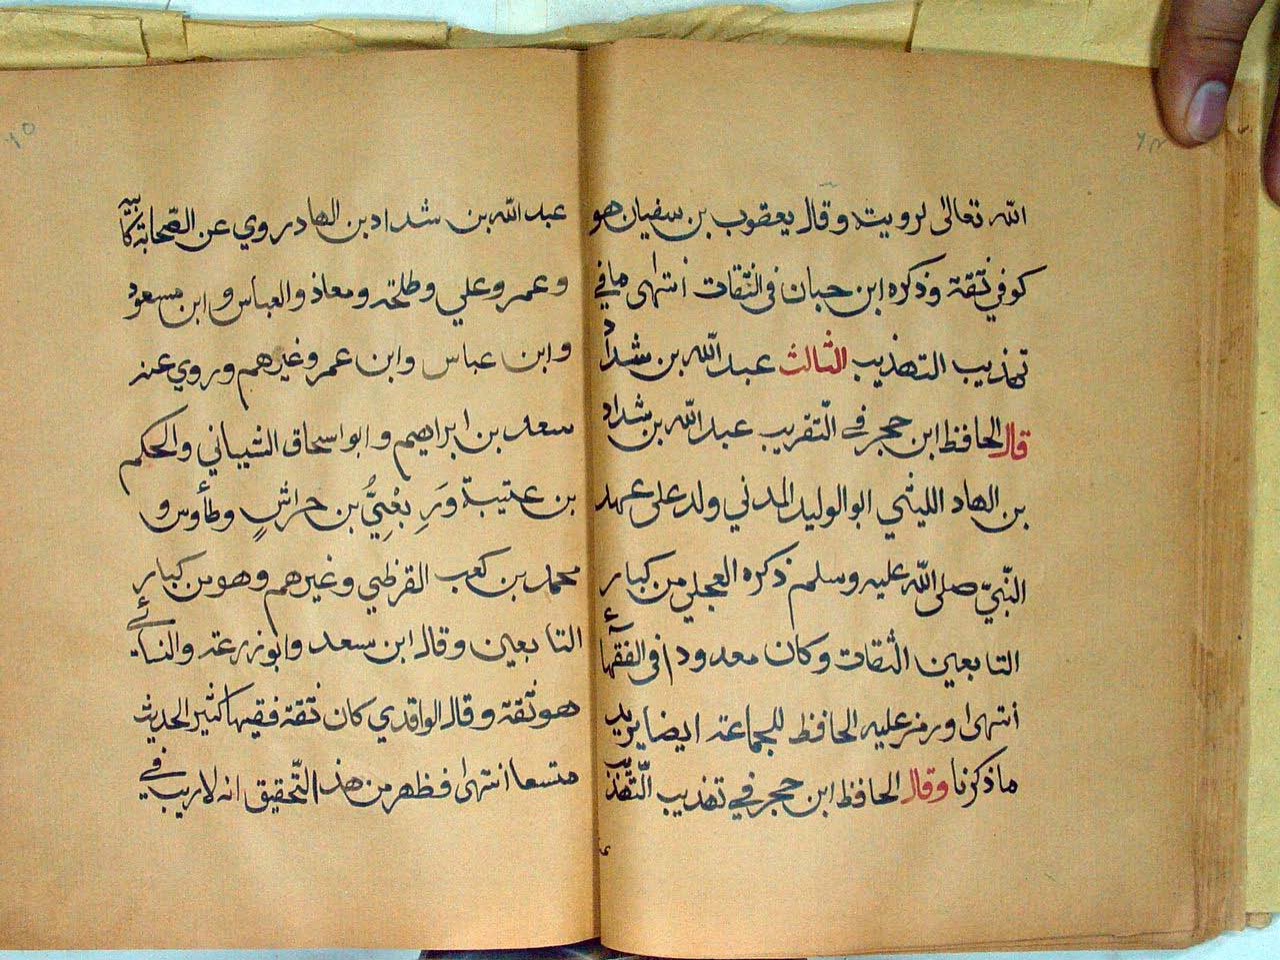 الله تعالى لرويته وقال يعقوب بن سفيان هو
كوفي ثقة وذكره ابن حبان في الثقات انتهى ما في
تهذيب التهذيب الثالث عبد الله بن شداد
قال الحافظ ابن حجر في التقريب عبد الله بن شداد
بن الهاد الليثي ابو الوليد المدني ولد على عهد
النبيّ صلى الله عليه وسلم ذكره العجلي من كبار
التابعين الثقات وكان معدودا في الفقهاء
انتهى ورمز عليه الحافظ للجماعة ايضا يريد
ما ذكرنا وقال الحافظ ابن حجر في تهذيب التهذيب
عبد الله بن شداد بن الهاد روي عن الصحابة كابيه
وعمر وعلي وطلحة ومعاذ والعباس وابن مسعود
وابن عباس وابن عمر وغيرهم وروي عنه
سعد بن ابراهيم وابو اسحاق الشيباني والحكم
بن عتيبة وَرِبْعِيُّ بن حراشٍ وطأوس و
محمد بن كعب القرظي وغيرهم وهو من كبار
التابعين وقال ابن سعد وابو زرعة والنسائي
هو ثقة وقال الواقدي كان ثقة فقيها كثير الحديث
متسعا انتهى فظهر من هذا التحقيق انه لا ريب في